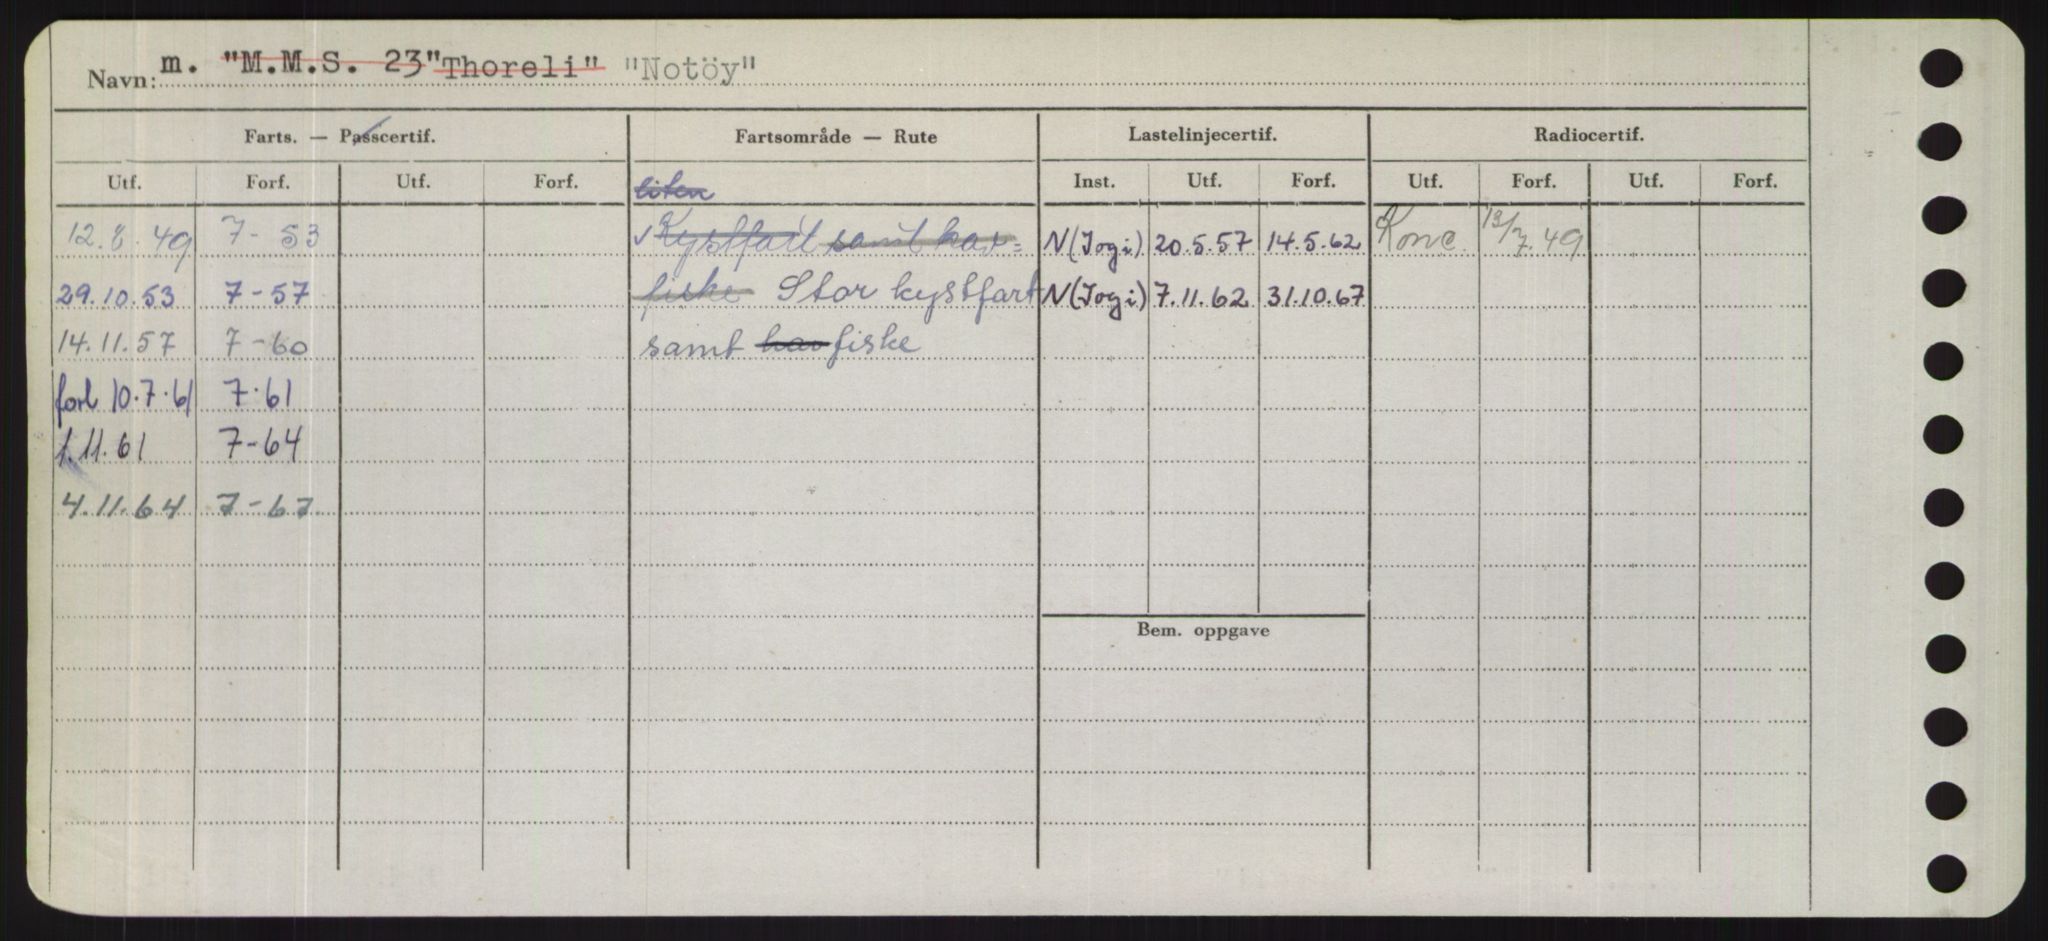 Navn: m. "M.M.S. 23" "Thoreli" "Notöy"
Farts. — Passcertif. Fartsområde — Rute Lastelinjecertif. Radiocertif.
Utf. Forf. Utf. Forf. liten Inst. Utf. Forf. Utf. Forf. Utf. Forf.
12.8.49 7-53 Kystfart samt hav= N(Jogi) 20.5.57 14.5.62 Konc. 13/7.49
29.10.53 7-57 fiske Stor kystfart N(Jogi) 7.11.62 31.10.67
14.11.57 7-60 samt hav fiske
forl 10.7.61 7.61
1.11.61 7-64
4.11.64 7-67
Bem. oppgave